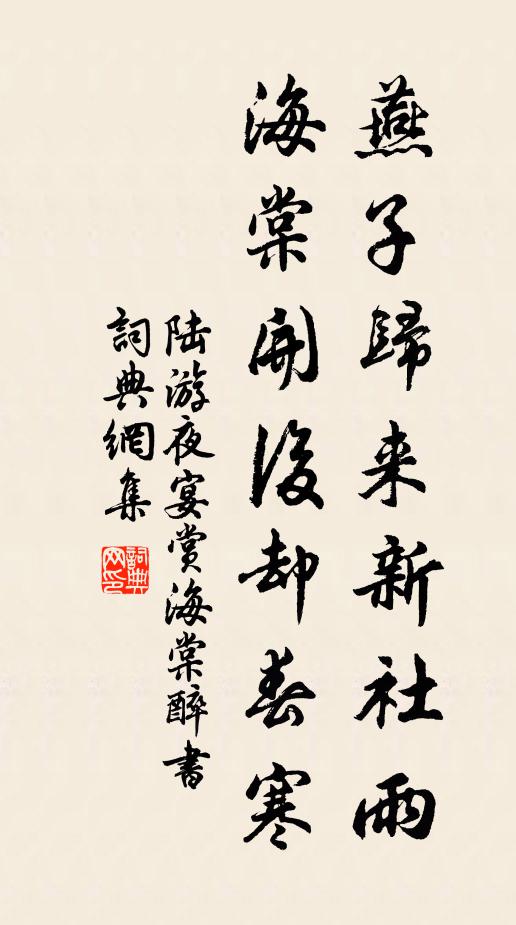 燕子歸来新社雨
海棠開後却春寒
陆游夜宴赏海棠醉書
詞典網集
詞典網印